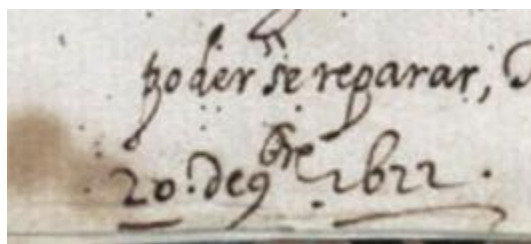 poder se reparar,
20. de 9bre 1622.